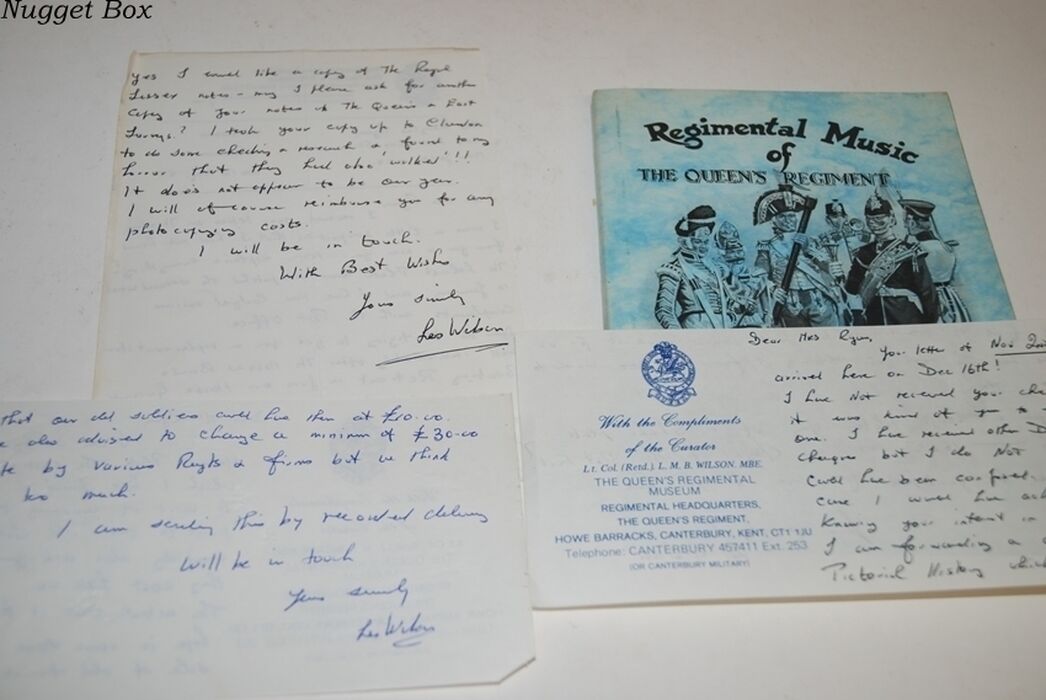 Nugget Box
Yes I would like a copy of The Royal
Sussex notes - may I please ask for another
copy of your notes of The Queens & East
Surreys? I took your copy up to Clandon
to do some checking & research & found to my
horror that they had also 'walked'!!!
It does not appear to be our year.
I will of course reimburse you for any
photocopying costs.
I will be in touch.
With Best Wishes
Yours sincerely
Les Wilson
Regimental Music
of
THE QUEEN'S REGIMENT
that our old soldiers could have them at £10.00.
also advised to charge a minimum of £30.00
by various Regts & firms but we think
too much.
I am sending this by recorded delivery
Will be in touch
Yours sincerely
Les Wilson
With the Compliments
of the Curator
Lt. Col. (Retd.) L. M. B. WILSON. MBE.
THE QUEEN'S REGIMENTAL
MUSEUM
REGIMENTAL HEADQUARTERS,
THE QUEEN'S REGIMENT,
HOWE BARRACKS, CANTERBURY, KENT, CT1 1JU
Telephone: CANTERBURY 457411 Ext. 253
(OR CANTERBURY MILITARY)
Dear Mrs
Your letter of Nov
arrived here on Dec 16th!
I have not received your
it was kind of you to
one. I have received other
cheques but I do not
could have been confused.
case I would have
knowing your interest in
I am forwarding a
Pictorial History which